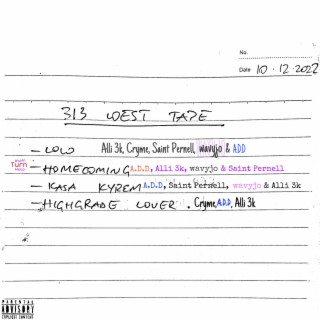 No.
Date 10.12.2022
313 WEST TAPE
- LOW Alli 3k, Cryme, Saint Pernell, wavyjo & ADD
- HOMECOMING A.D.D, Alli 3k, wavyjo & Saint Pernell
Turn
- KASA KYREM A.D.D, Saint Pernell, wavyjo & Alli 3k
- HIGHGRADE LOVER . Cryme, A.D.D, Alli 3k
PARENTAL
ADVISORY
EXPLICIT CONTENT